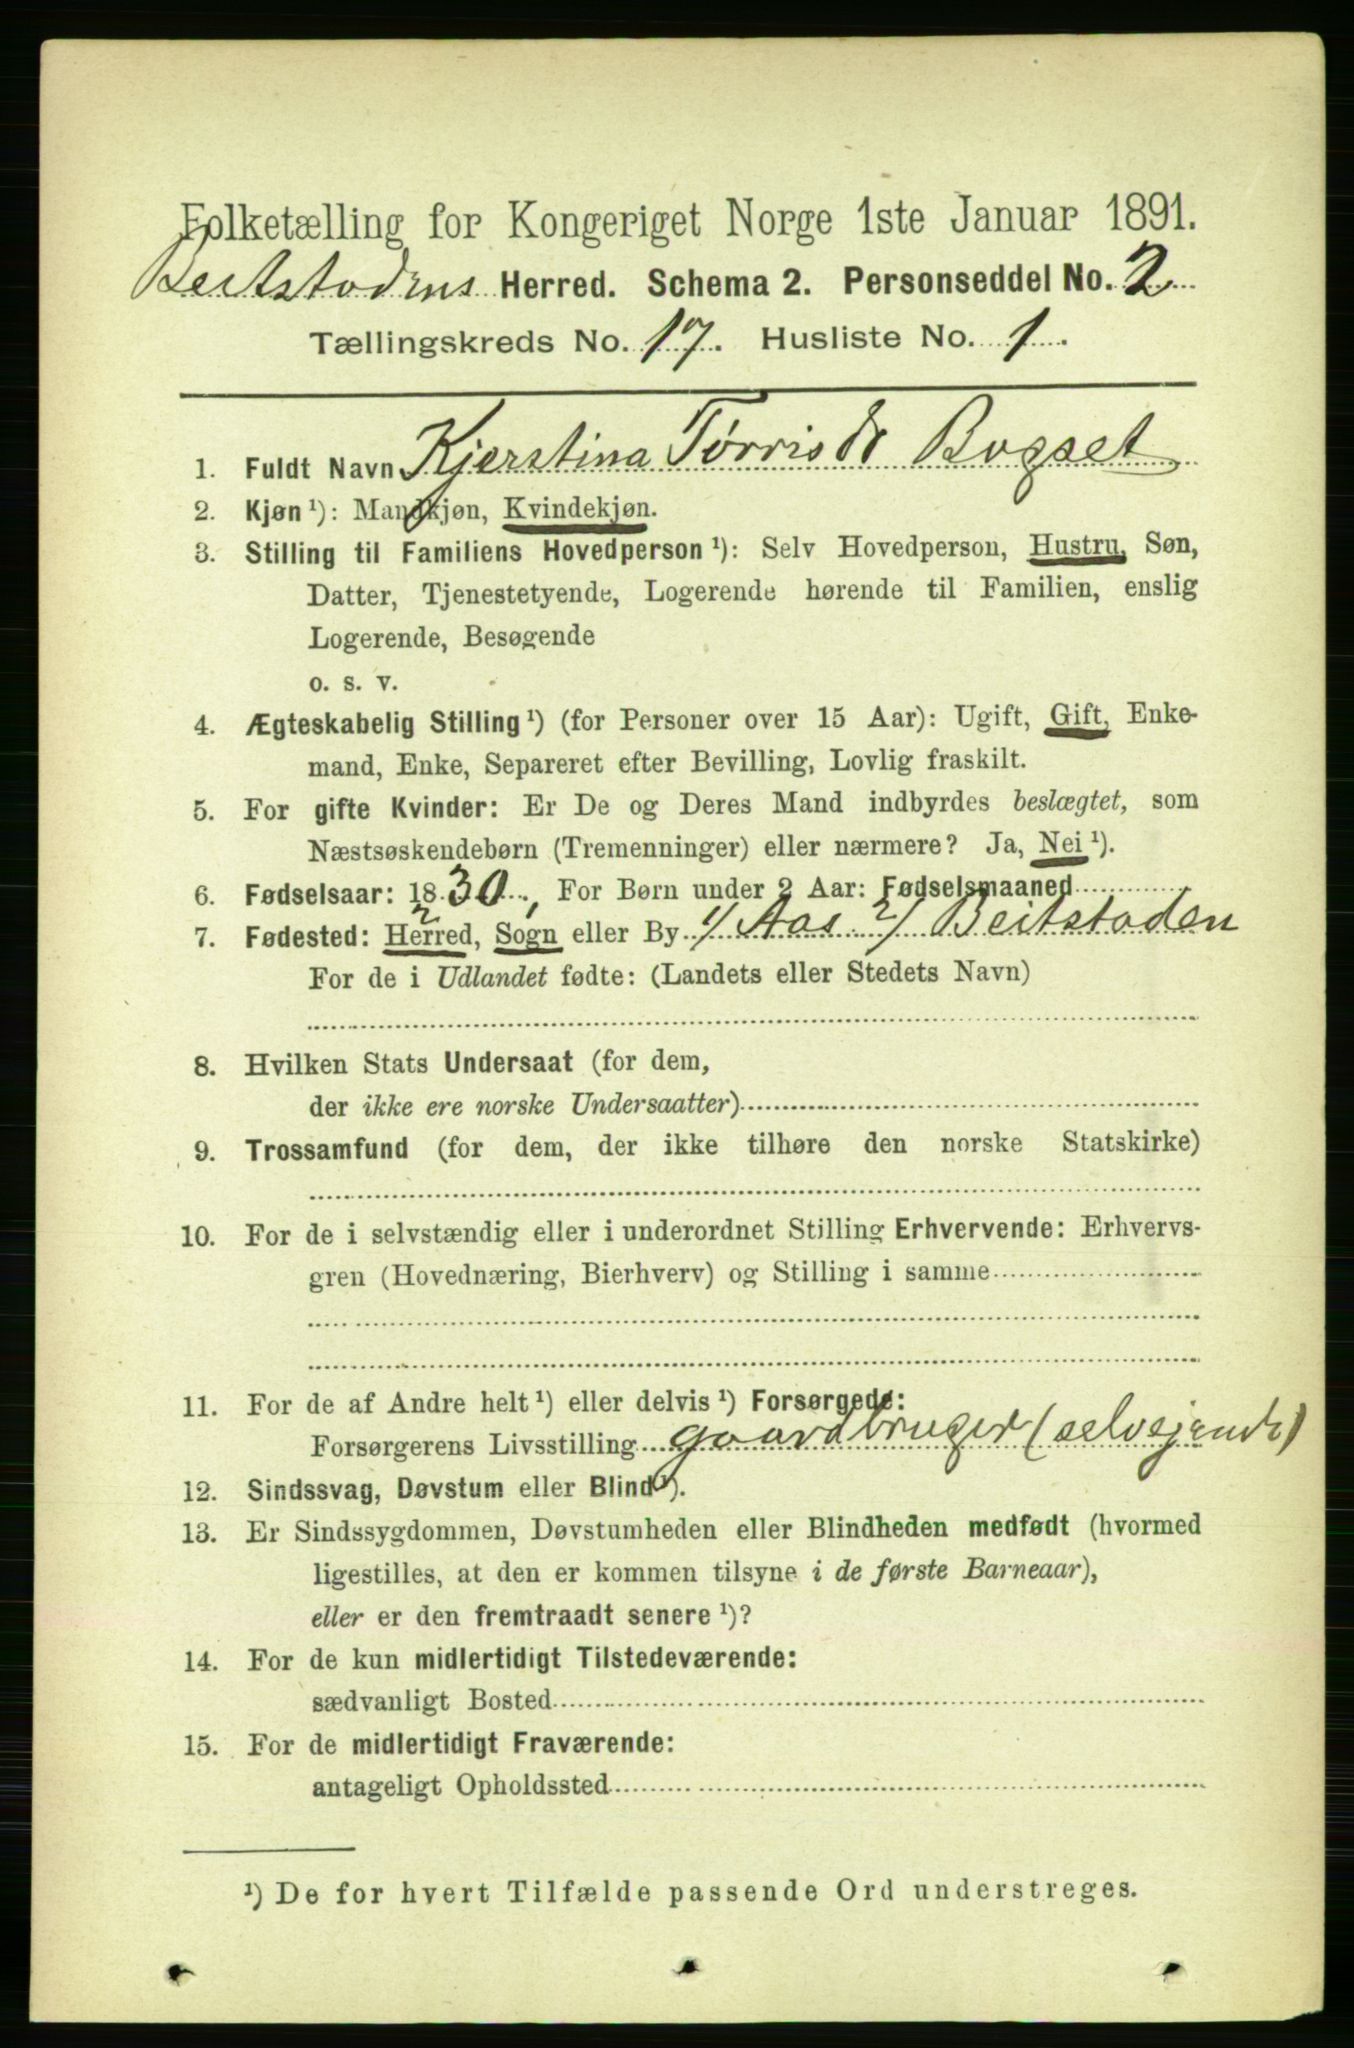 Folketælling for Kongeriget Norge 1ste Januar 1891.
Beitstadens Herred. Schema 2. Personseddel No. 2
Tællingskreds No. 17. Husliste No. 1.
1. Fuldt Navn Kjerstina Tørrisdr Bogset
2. Kjøn ¹): Mandkjøn, Kvindekjøn.
3. Stilling til Familiens Hovedperson ¹): Selv Hovedperson, Hustru, Søn,
Datter, Tjenestetyende, Logerende hørende til Familien, enslig
Logerende, Besøgende
o. s. v.
4. Ægteskabelig Stilling ¹) (for Personer over 15 Aar): Ugift, Gift, Enke-
mand, Enke, Separeret efter Bevilling, Lovlig fraskilt.
5. For gifte Kvinder: Er De og Deres Mand indbyrdes beslægtet, som
Næstsøskendebørn (Tremenninger) eller nærmere? Ja, Nei ¹).
6. Fødselsaar: 1830, For Børn under 2 Aar: Fødselsmaaned
2
7. Fødested: Herred, Sogn eller By 1/ Aas 2/ Beitstaden
For de i Udlandet fødte: (Landets eller Stedets Navn)
8. Hvilken Stats Undersaat (for dem,
der ikke ere norske Undersaatter)
9. Trossamfund (for dem, der ikke tilhøre den norske Statskirke)
10. For de i selvstændig eller i underordnet Stilling Erhvervende: Erhvervs-
gren (Hovednæring, Bierhverv) og Stilling i samme
11. For de af Andre helt ¹) eller delvis ¹) Forsørgede:
Forsørgerens Livsstilling gaardbruger (selvejende)
12. Sindssvag, Døvstum eller Blind ¹).
13. Er Sindssygdommen, Døvstumheden eller Blindheden medfødt (hvormed
ligestilles, at den er kommen tilsyne i de første Barneaar),
eller er den fremtraadt senere ¹)?
14. For de kun midlertidigt Tilstedeværende:
sædvanligt Bosted
15. For de midlertidigt Fraværende:
antageligt Opholdssted
¹) De for hvert Tilfælde passende Ord understreges.